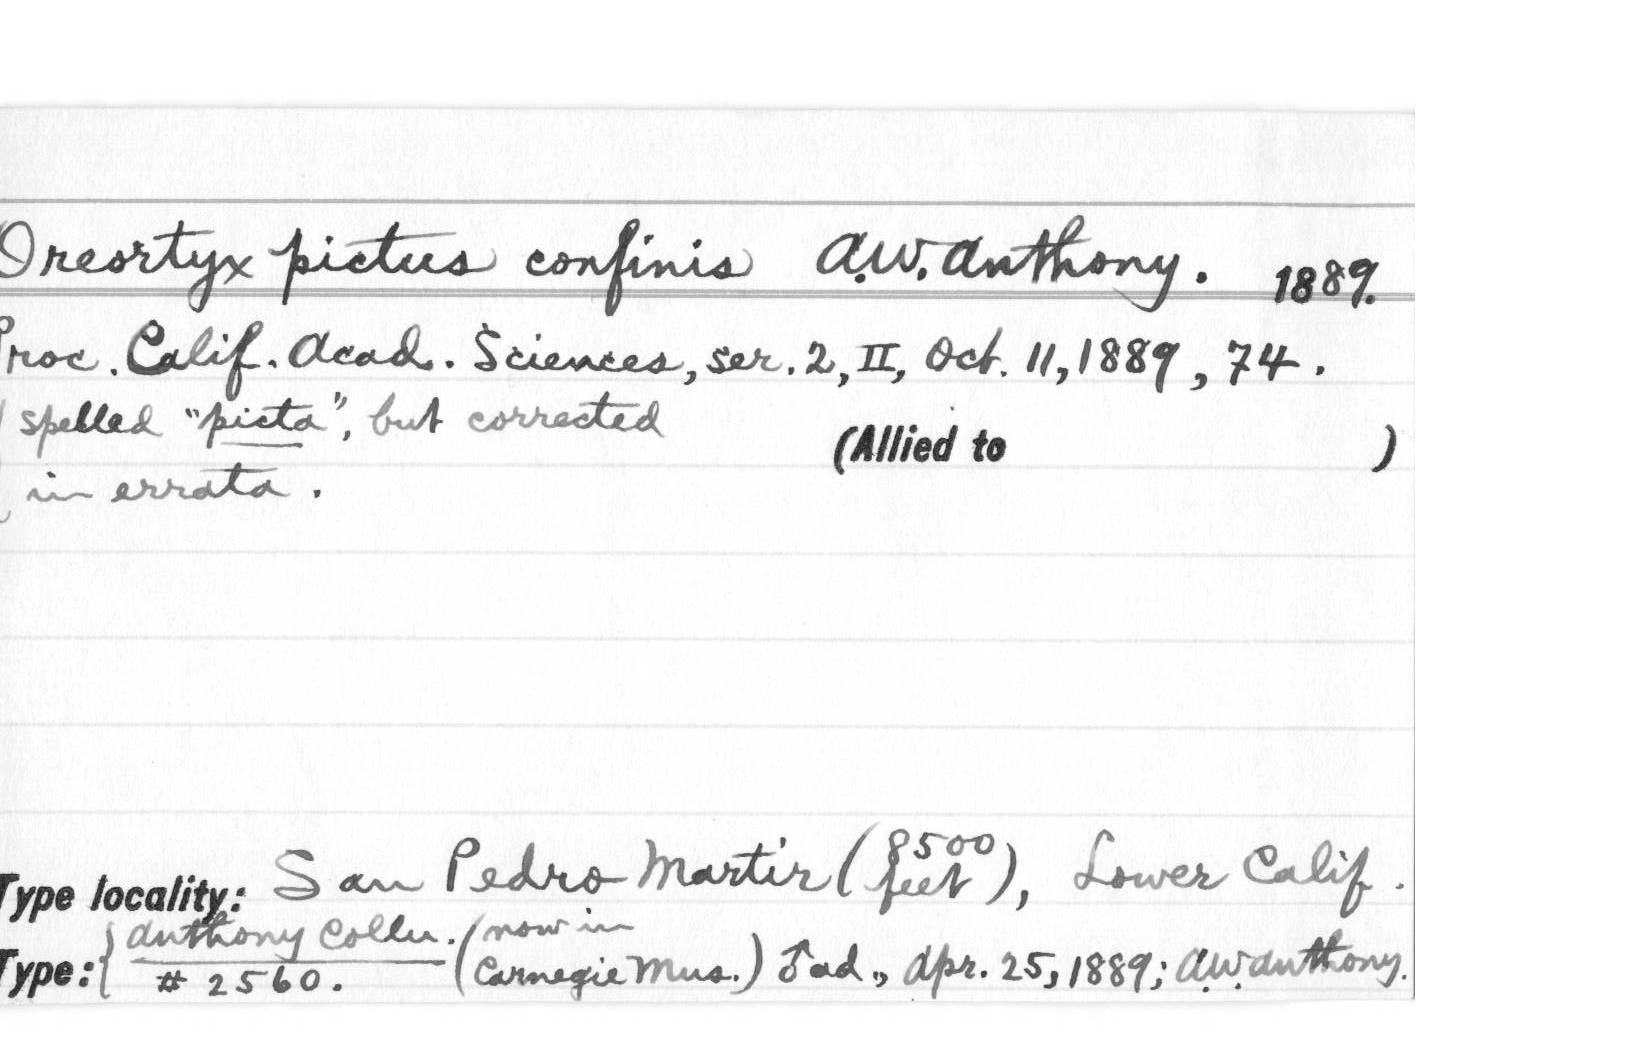 Oreortyx pictus confinis A.W. Anthony. 1889.
Proc. Calif. Acad. Sciences, ser. 2, II, Oct. 11, 1889, 74.
spelled "picta", but corrected
(Allied to )
in errata.
Type locality: San Pedro Martir (8500 feet), Lower Calif.
Type: { Anthony Colln. # 2560. (now in Carnegie Mus.) ♂ ad., Apr. 25, 1889; A.W. Anthony.